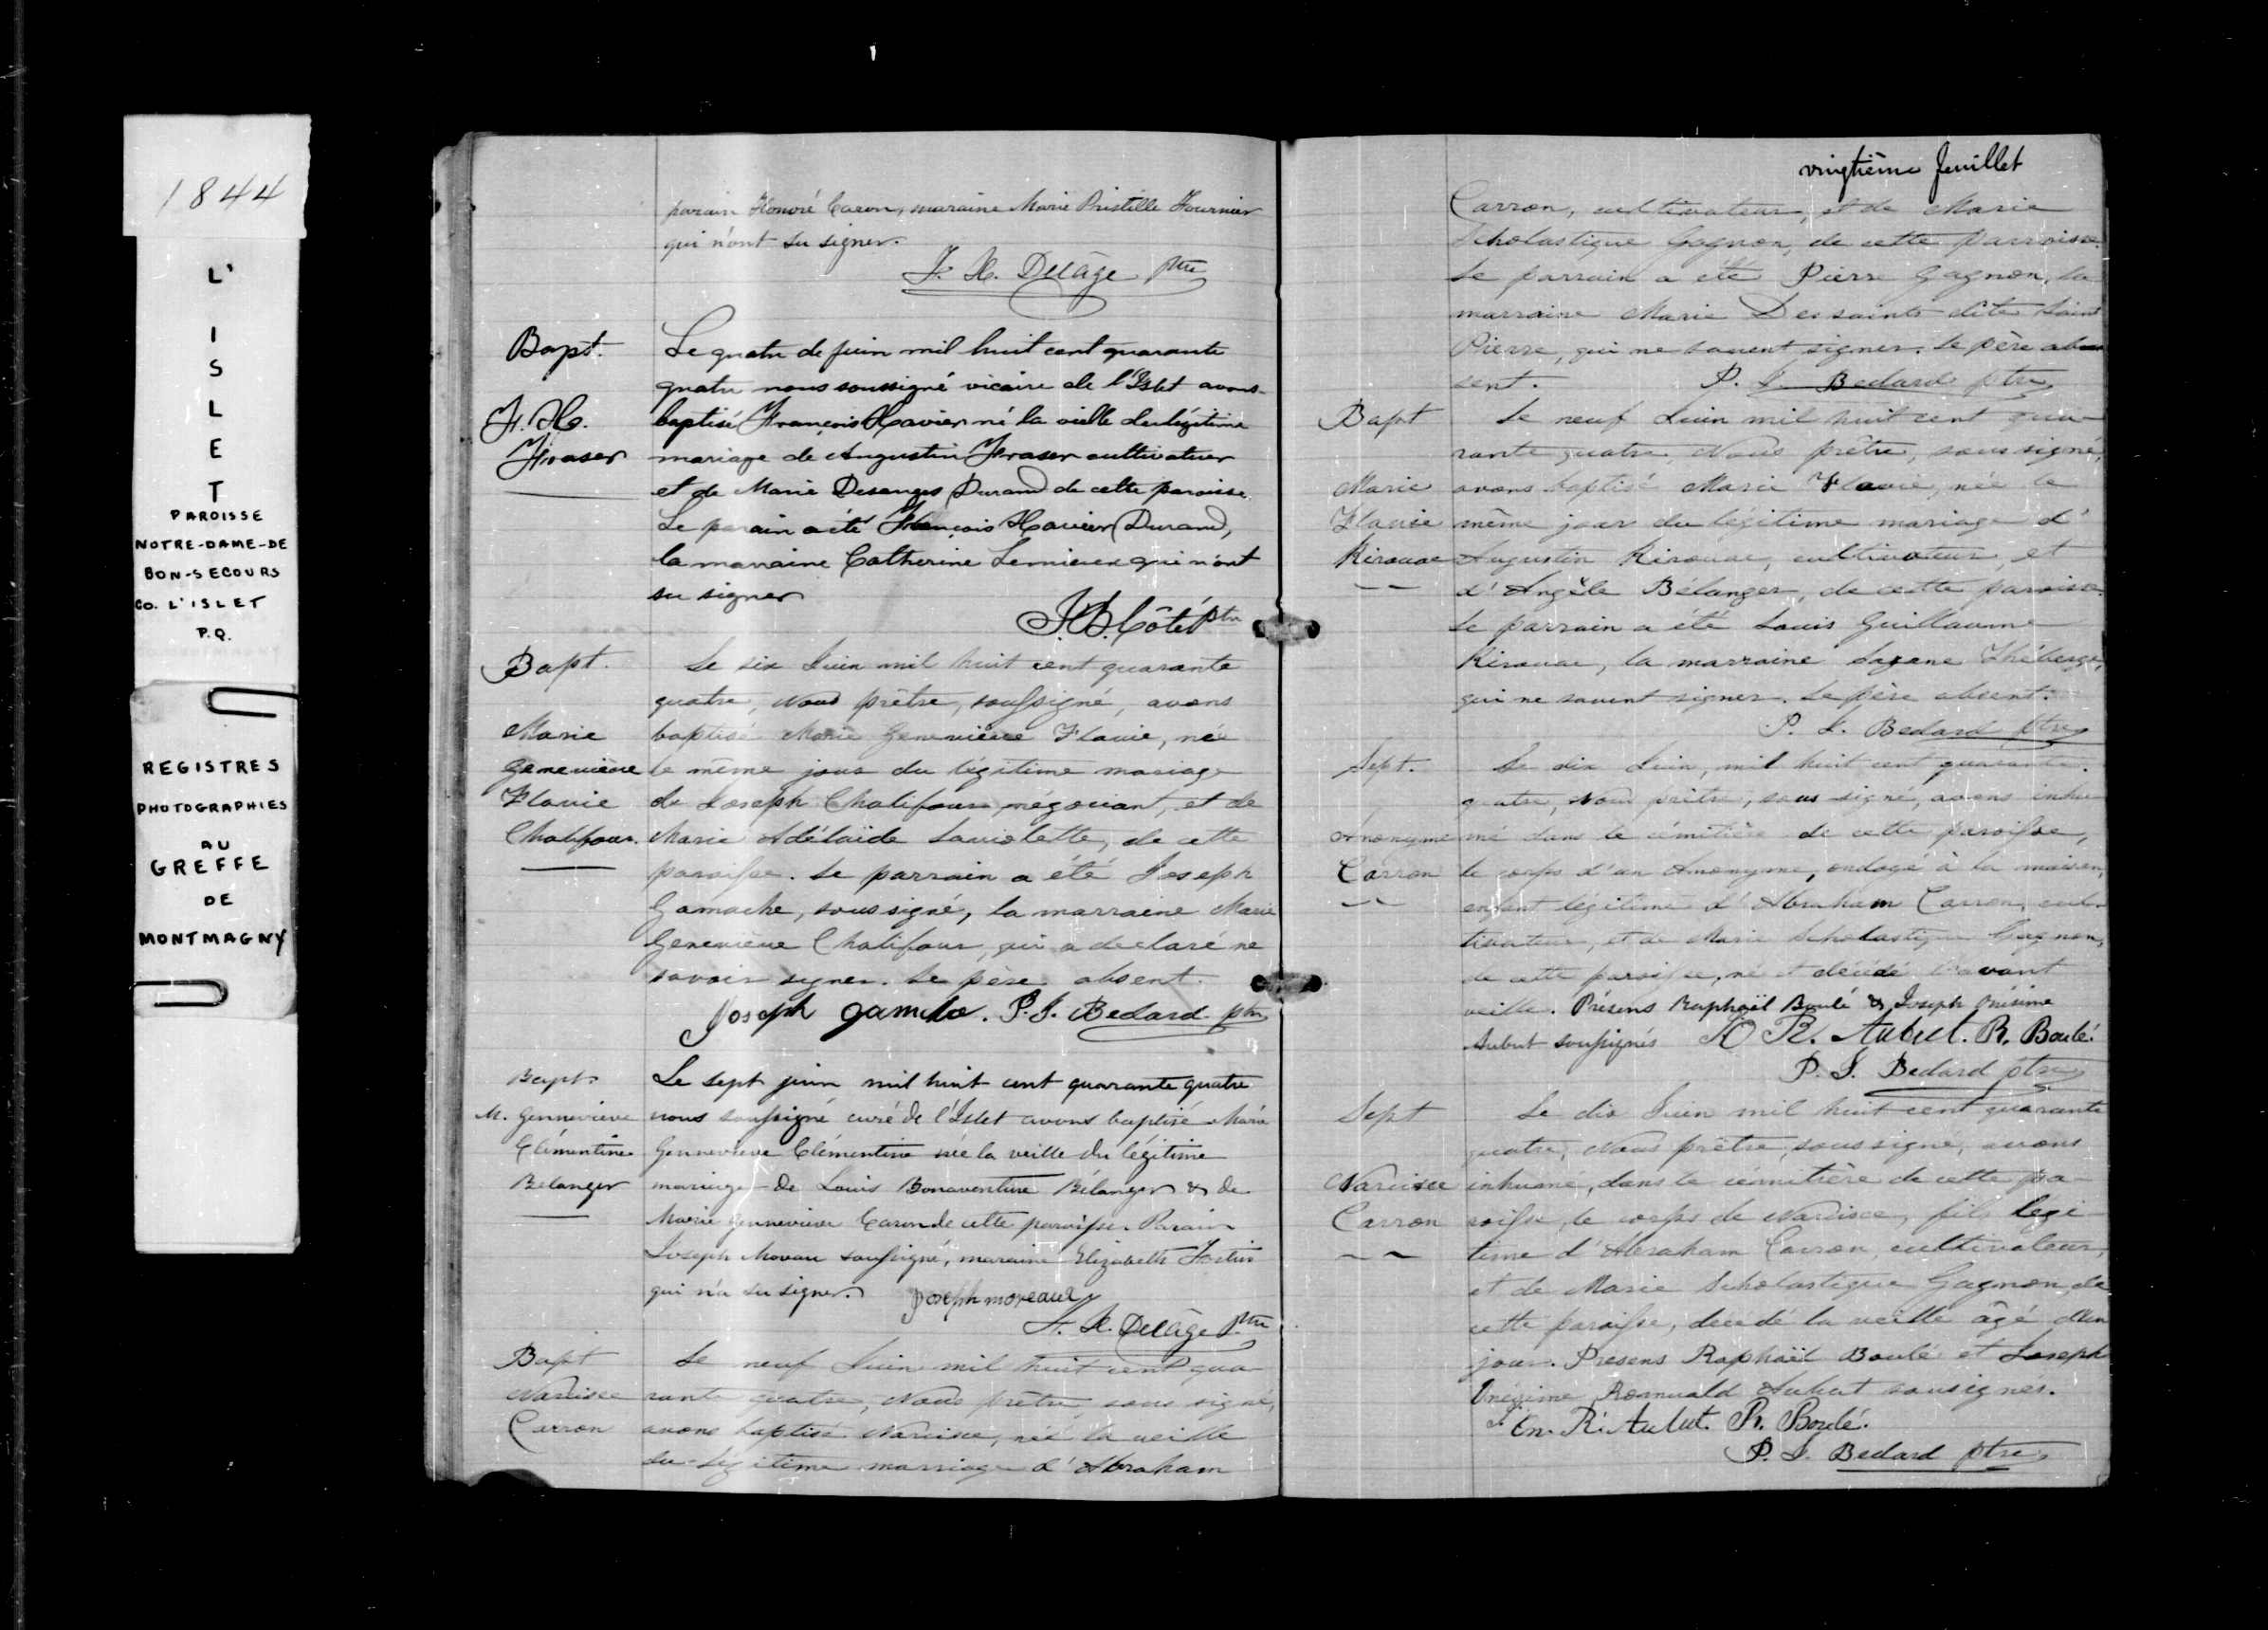 1844
L'
I
S
L
E
T
PAROISSE
NOTRE-DAME-DE
BON-SECOURS
CO. L'ISLET
P.Q.
REGISTRES
PHOTOGRAPHIES
AU
GREFFE
DE
MONTMAGNY
parain Honoré Caron, maraine Marie Pristille Fournier
qui n'ont su signer.
F. X. Delâge Ptre
Bapt.
F. X.
Fraser
Le quatre de juin mil huit cent quarante
quatre nous soussigné vicaire de l'Islet avons
baptisé François Xavier né la veille du légitime
mariage de Augustin Fraser cultivateur
et de Marie Desanges Durand de cette paroisse.
Le parain a été François Xavier Durand,
la marraine Catherine Lemieux qui n'ont
su signer
Côté ptre
Bapt.
Marie
Geneviève
Flavie
Chalifour.
Le six Juin mil huit cent quarante
quatre, Nous prêtre, soussigné, avons
baptisé Marie Geneviève Flavie, née
le même jour du légitime mariage
de Joseph Chalifour négociant, et de
Marie Adélaïde Laviolette, de cette
paroisse. Le parrain a été Joseph
Gamache, sous signé, la marraine Marie
Geneviève Chalifour, qui a declaré ne
savoir signer. Le père absent.
Joseph P. J. Bedard ptre
Bapt.
M. Genneviève
Clémentine
Bélanger
Le sept juin mil huit cent quarante quatre
nous soussigné curé de l'Islet avons baptisé Marie
Genneviève Clémentine née la veille du légitime
mariage de Louis Bonaventure Bélanger & de
Marie Genneviève Caron de cette paroisse. Parain
Joseph Moreau soussigné, maraine Elizabeth Fortin
qui n'a su signer. Joseph moreau
F. X. Delâge Ptre
Bapt
Narcisse
Carron
Le neuf Juin mil huit cent qua
rante quatre, Nous prêtre, sous signé,
avons baptisé Narcisse, né la veille
du légitime marriage d'Abraham
vingtième feuillet
Carron, cultivateur, et de Marie
Scholastique Gagnon, de cette parroisse.
Le parrain a été Pierre Gagnon, la
marraine Marie Dessaints dite Saint
Pierre, qui ne savent signer. Le père ab
sent. P. J. Bedard ptre
Bapt
Marie
Flavie
Kirouac
Le neuf Juin mil huit cent qua-
rante quatre, Nous prêtre, sous signé,
avons baptisé Marie Flavie, née le
même jour du légitime mariage d'
Augustin Kirouac, cultivateur, et
d'Angèle Bélanger, de cette paroisse.
Le parrain a été Louis Guillaume
Kirouac, la marraine Théberge,
qui ne savent signer. Le père absent.
P. J. Bedard ptre
Sept.
Anonyme
Carron
Le dix Juin, mil huit cent quarante.
quatre, Nous prêtre, sous signé, avons inhu
mé dans le cémitière de cette paroisse,
le corps d'un Anonyme, ondoyé à la maison,
enfant légitime d'Abraham Carron, cul-
tivateur, et de Marie Scholastique Gagnon,
de cette paroisse, né et décédé l'avant
veille. Présens Raphaël Boulé & Joseph Onésime
Aubut soussignés R. Aubut. R. Boulé.
P. J. Bedard ptre
Sept
Narcisse
Carron
Le dix Juin mil huit cent quarante
quatre, Nous prêtre, soussigné, avons
inhumé, dans le cémitière de cette pa-
roisse, le corps de Narcisse, fils legi
time d'Abraham Carron, cultivateur,
et de Marie Scholastique Gagnon, de
cette paroisse, décédé la veille âgé d'un
jour. Presens Raphaël Boulé et Joseph
Onésime Romuald Aubut sousignés.
J. On. R. Aubut. R. Boulé.
P. J. Bedard ptre